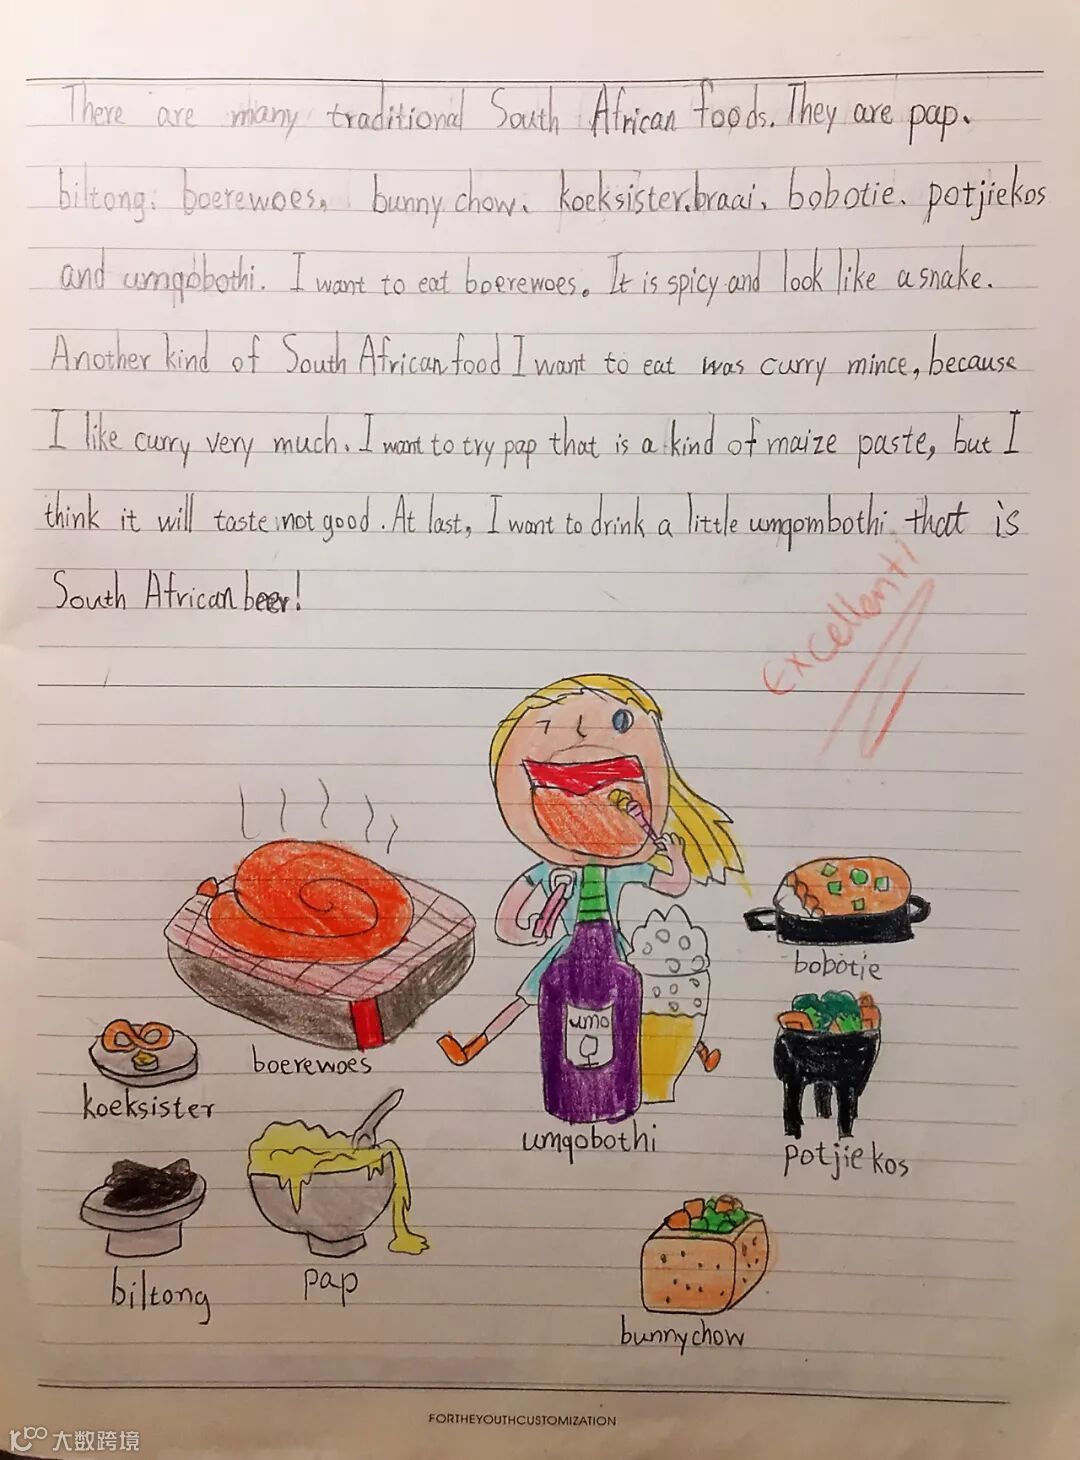 There are many traditional South African foods. They are pap、
biltong、boerewoes、bunny chow、koeksister、braai、bobotie、potjiekos
and umqobothi. I want to eat boerewoes. It is spicy and look like a snake.
Another kind of South African food I want to eat was curry mince, because
I like curry very much. I want to try pap that is a kind of maize paste, but I
think it will taste not good. At last, I want to drink a little umqombothi that is
South African beer!
Excellent!
bobotie
umqo
boerewoes
koeksister
umqobothi
potjiekos
pap
biltong
bunnychow
FORTHEYOUTHCUSTOMIZATION
大数跨境